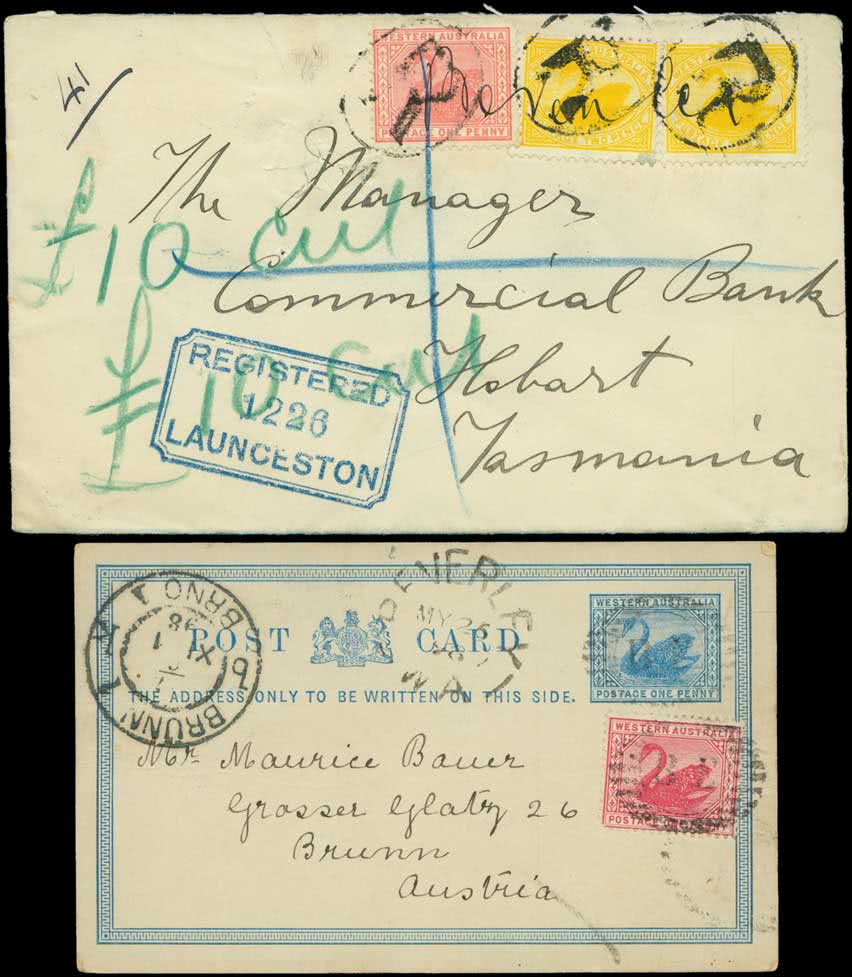 41
WESTERN AUSTRALIA
POSTAGE ONE PENNY
R
R
TWO PENCE
R
The Manager
£10 cut
Commercial Bank
£10 cut
Hobart
Tasmania
REGISTERED
1226
LAUNCESTON
BRUNN
BRNO
98
BEVERLEY
MY 26
W.A
POST CARD
THE ADDRESS ONLY TO BE WRITTEN ON THIS SIDE.
WESTERN AUSTRALIA
POSTAGE ONE PENNY
WESTERN AUSTRALIA
POSTAGE ONE PENNY
Mr Maurice Bauer
Grosser Glatz 26
Brunn
Austria